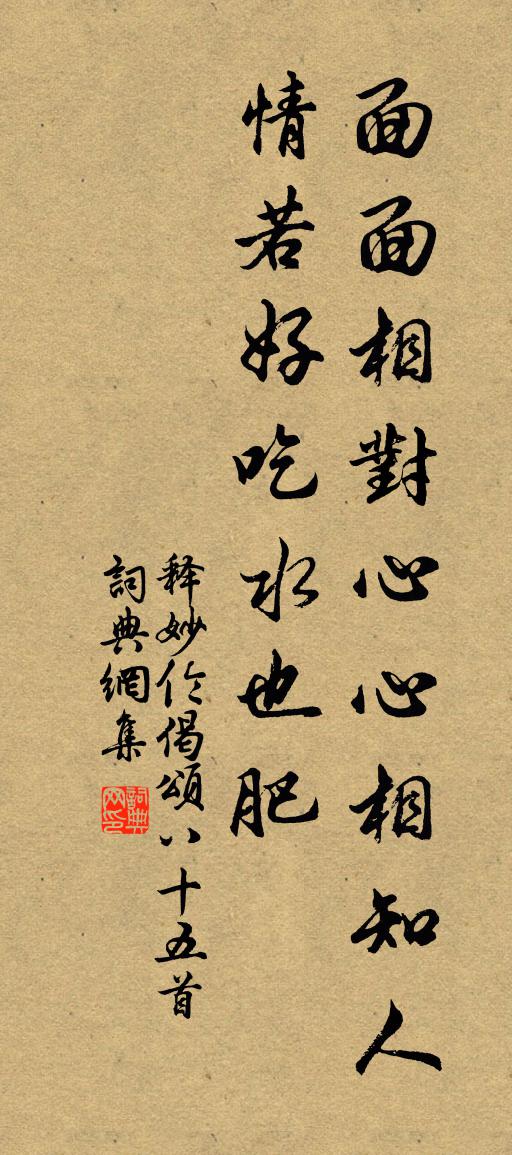 面面相對心心相知人
情若好吃水也肥
释妙伦偈頌八十五首
詞典網集
詞典网印